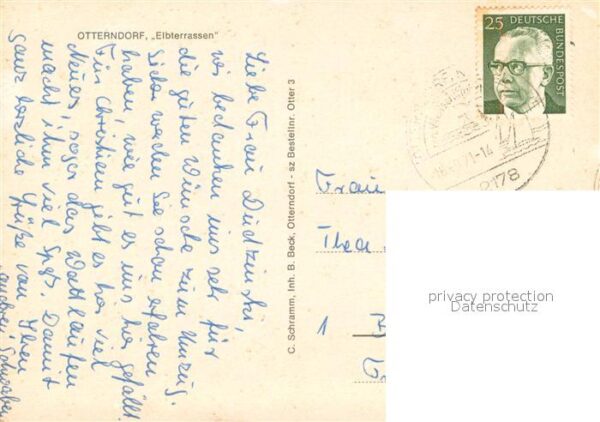 OTTERNDORF, „Elbterrassen"
Liebe Frau Dudzinski,
wir bedanken uns sehr für
die guten Wünsche zum Umzug.
Sicher werden Sie schon erfahren
haben, wie gut es uns hier gefällt.
Für Christian gibt es hier viel
Neues, sogar das Wattlaufen
macht ihm viel Spaß. Damit
ganz herzliche Grüße von Ihren
C. Schramm, Inh. B. Beck, Otterndorf - sz Bestellnr. Otter 3
25 DEUTSCHE BUNDESPOST
71-14
2178
Frau
Thea
1
privacy protection
Datenschutz